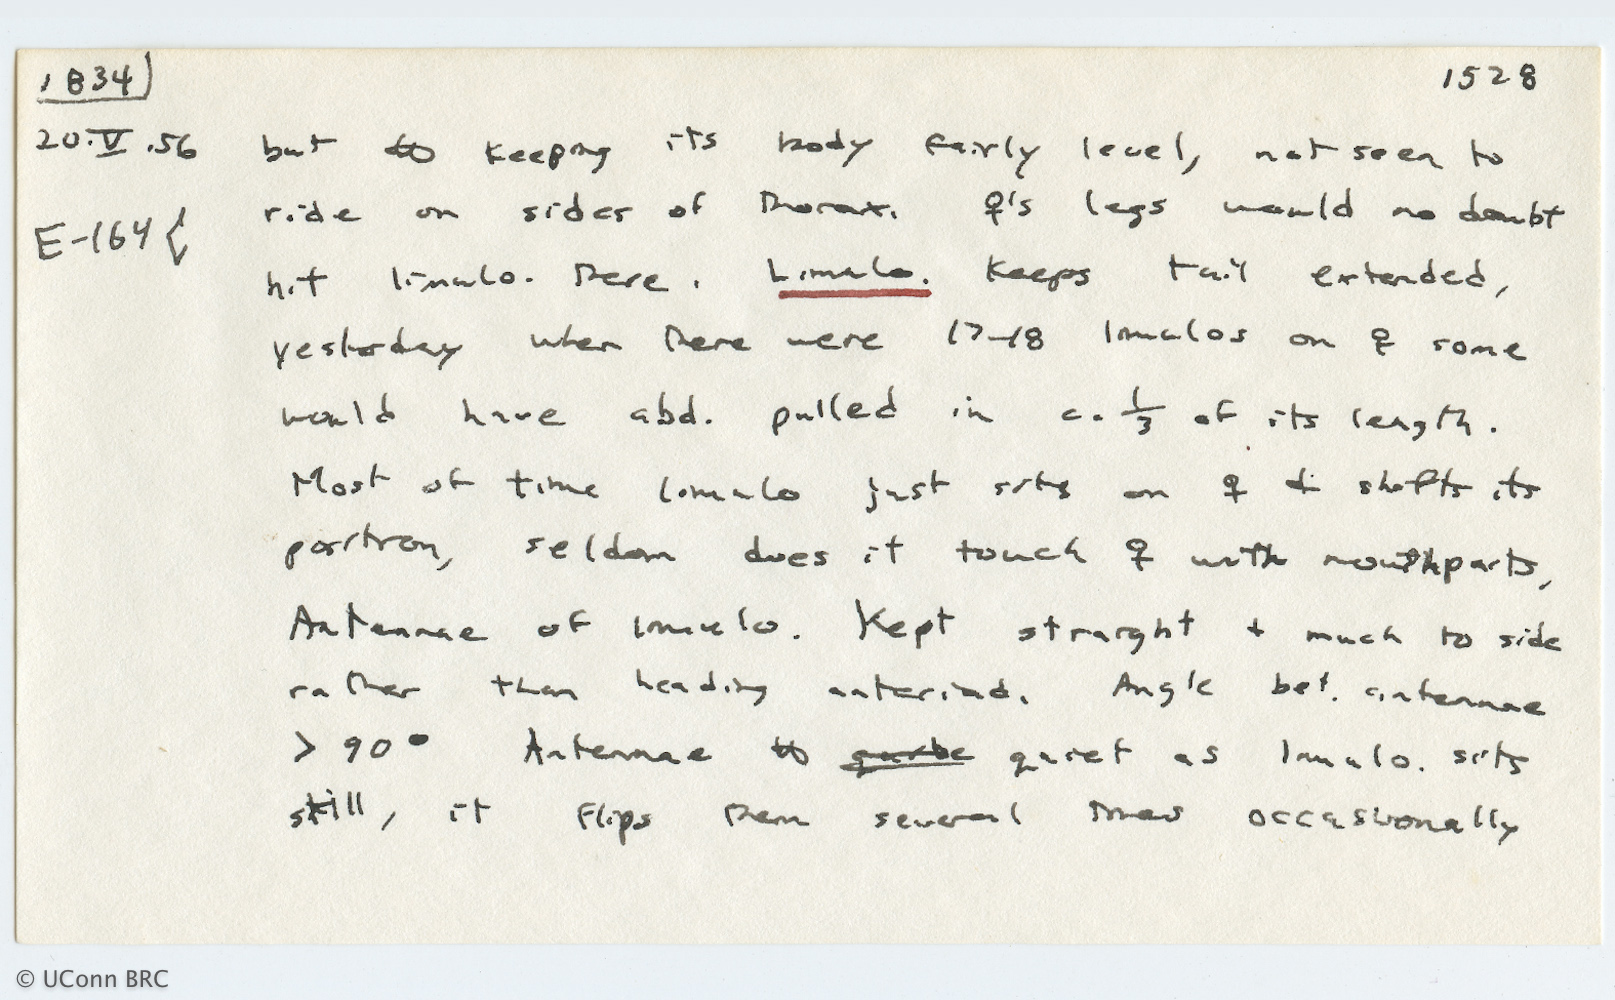 1834) 1528
20.V.56 but keeping its body fairly level, not seen to
ride on sides of thorax. ♀'s legs would no doubt
E-164 { hit limulo. there. Limulo. keeps tail extended,
yesterday when there were 17-18 limulos on ♀ some
would have abd. pulled in c. 1/3 of its length.
Most of time limulo just sits on ♀ + shifts its
position, seldom does it touch ♀ with mouthparts,
Antennae of limulo. Kept straight + much to side
rather than heading anteriad. Angle bet. antennae
> 90° Antennae quiet as limulo. sits
still, it flips them several times occasionally
© UConn BRC